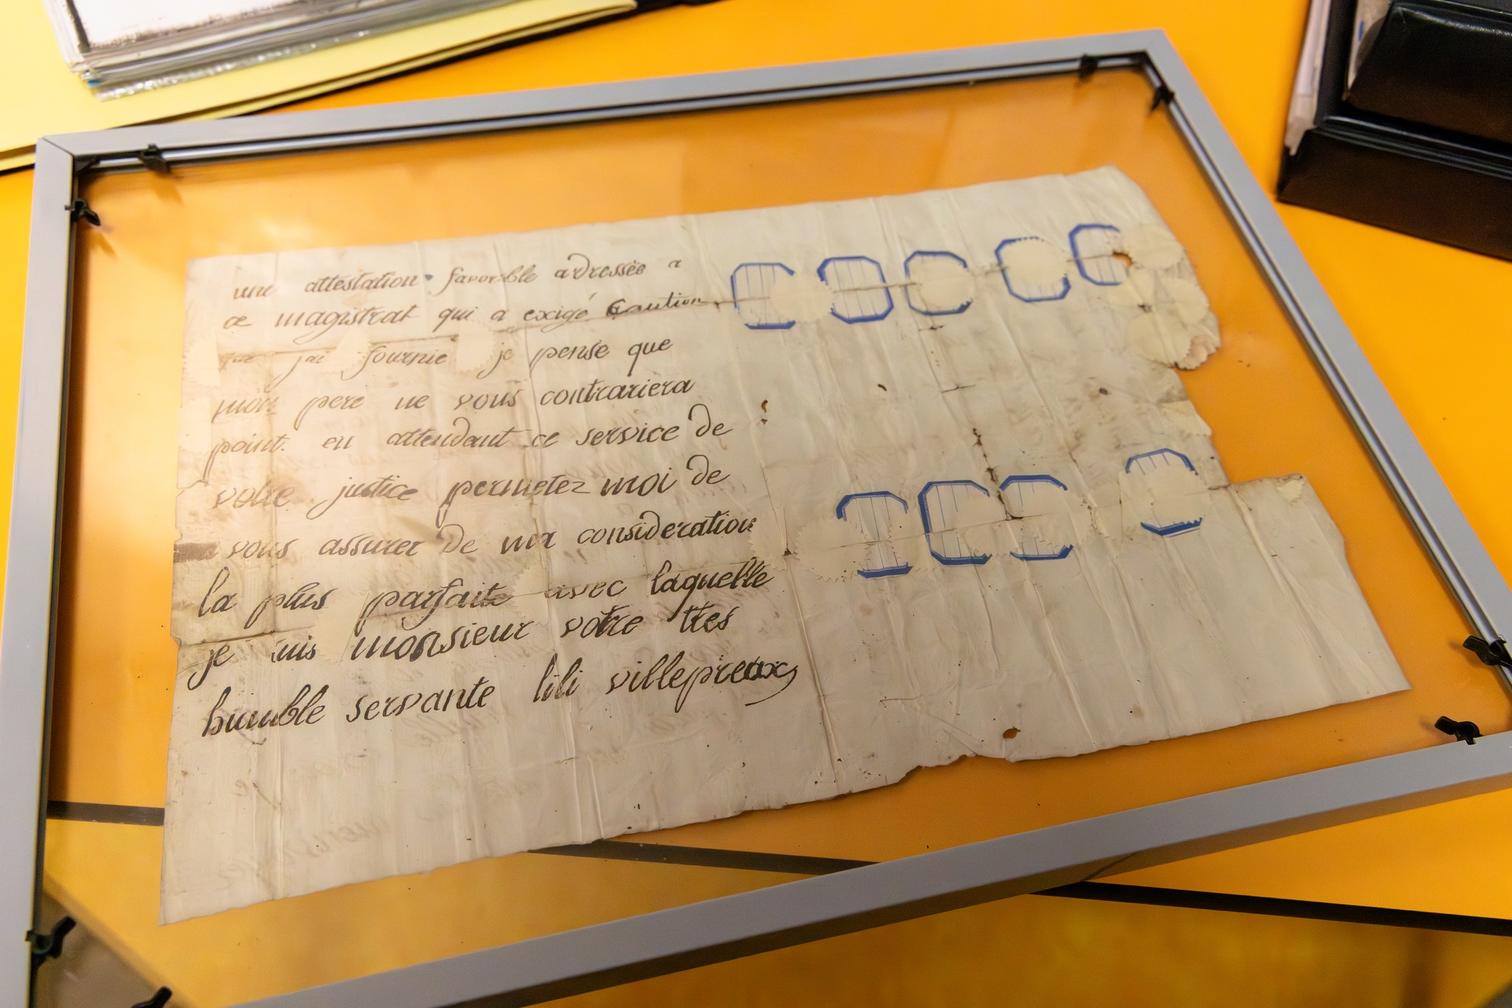 une attestation favorable adressée a
ce magistrat qui a exigé Caution
que jai fournie je pense que
mon pere ne vous contrariera
point. en attendant ce service de
votre justice permetez moi de
vous assurer de ma consideration
la plus parfaite avec laquelle
je suis monsieur votre ttes
humble servante lili villepreux